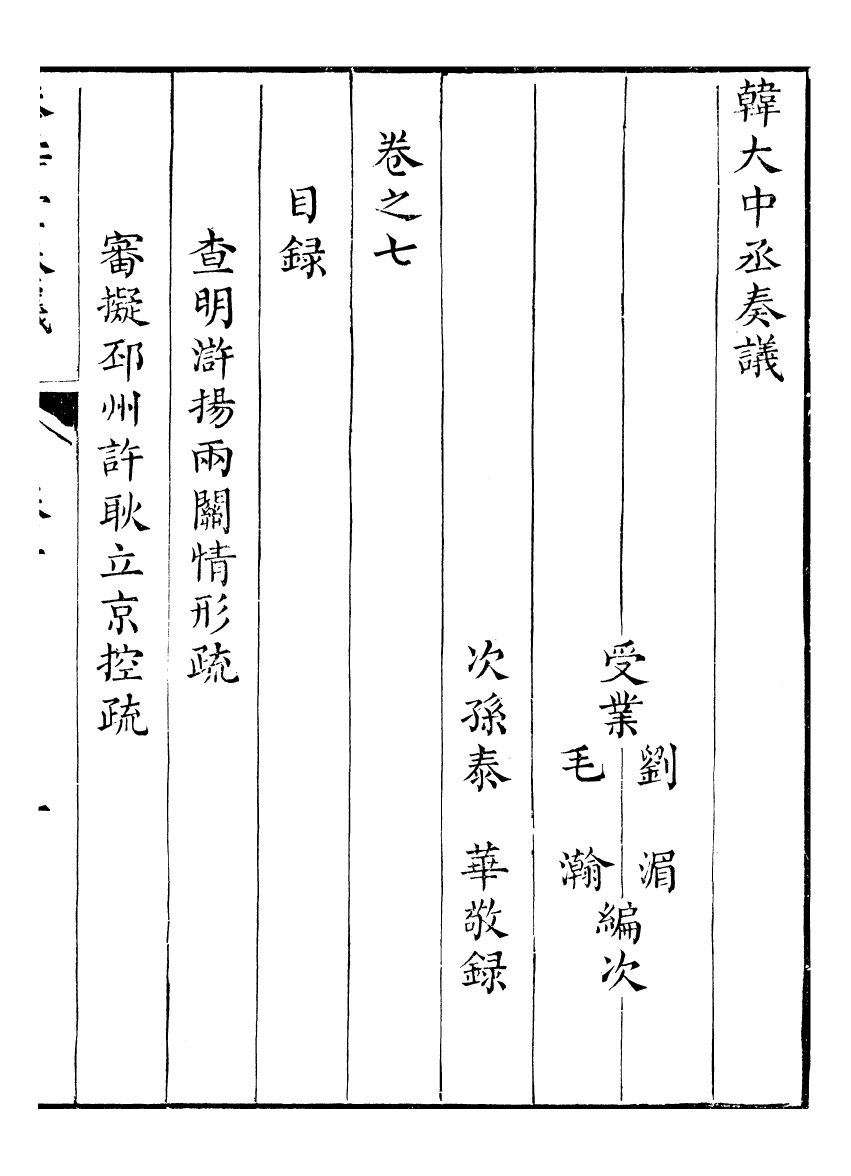 韓大中丞奏議
受業劉湄毛瀚編次
次孫泰華敬録
卷之七
目録
查明滸揚兩關情形疏
審擬邳州許耿立京控疏